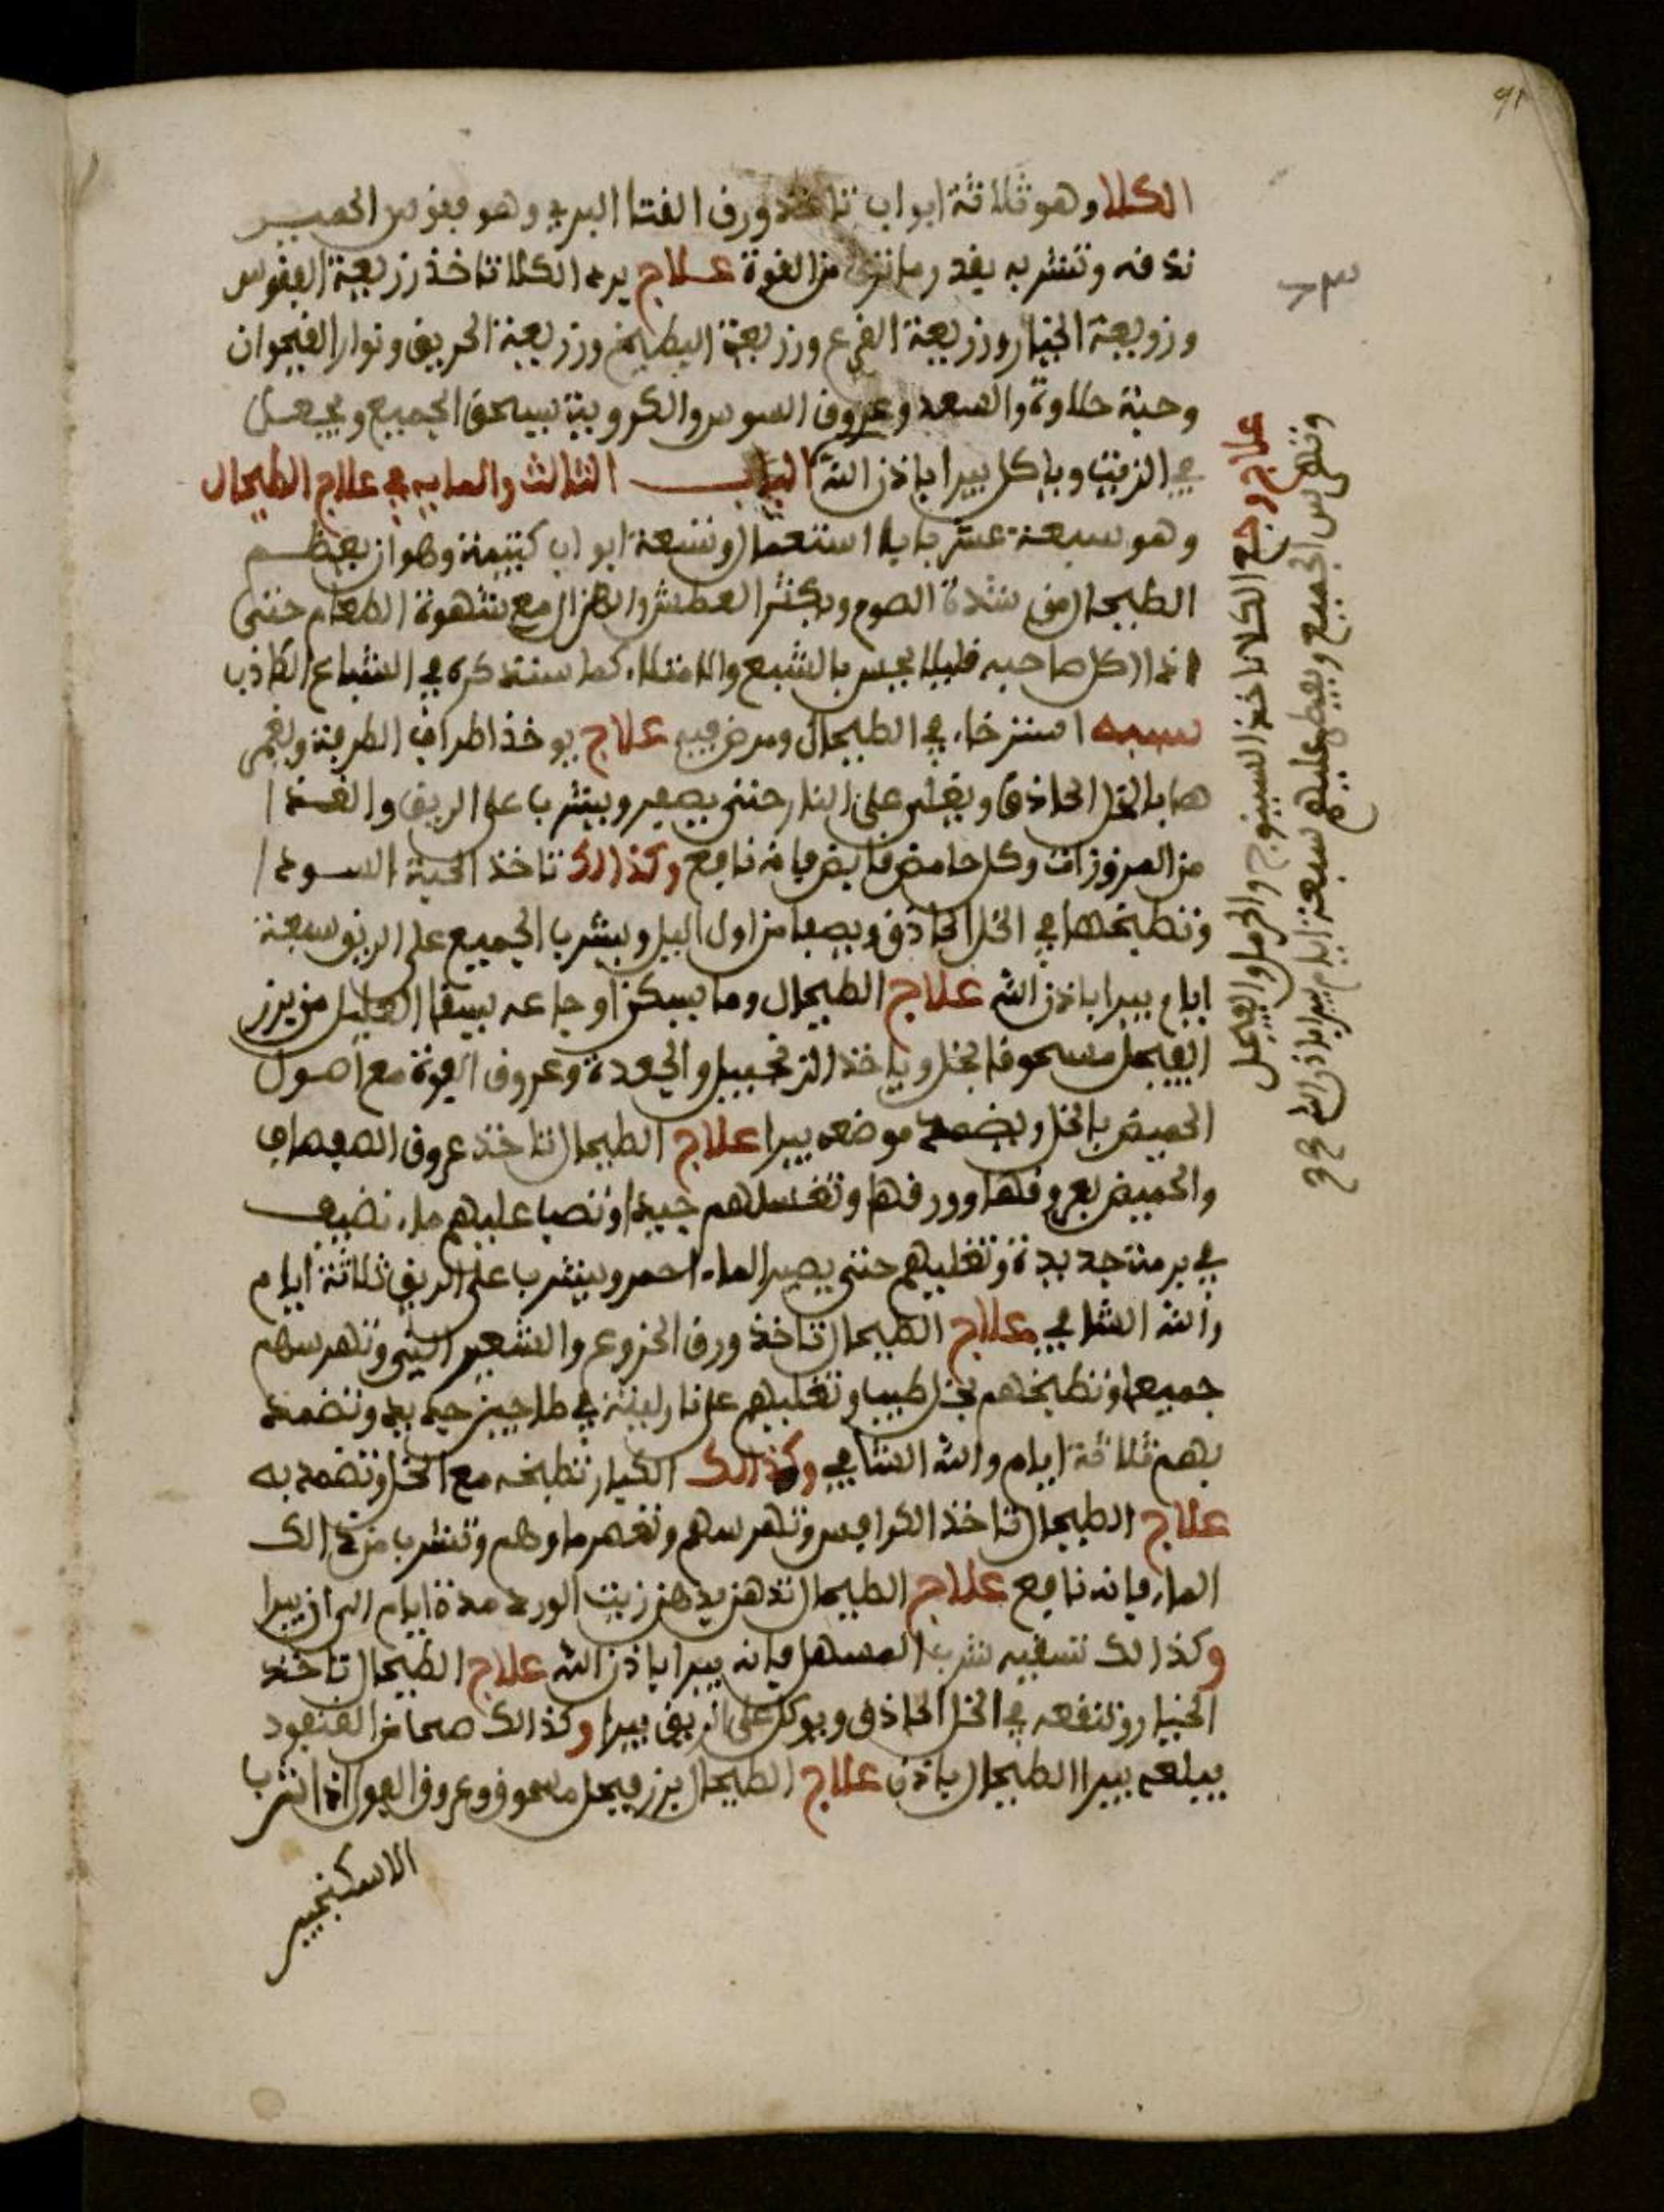 الكلا وهو ثلاثة ابواب تاخذ ورق القثا البري وهو فقوس الحمير
تدقه وتشربه بقدر ما ترى من القوة علاج برد الكلا تاخذ زريعة الفقوس
وزريعة الخيار وزريعة القرع وزريعة البطيخ وزريعة الحريق ونوار القيحوان
وحبة حلاوة والسعد وعروق السوس والكروية يسحق الجميع ويجعل
في الزيت وياكل يبرا باذن الله الباب الثالث والمايه في علاج الطيحال
وهو سبعة عشر بابا استعمال وتسعة ابواب كتيمة وهو ان يعظم
الطيحال من شدة الصوم ويكثر العطش والهزال مع شهوة الطعام حتى
اذا اكل صاحبه قليلا يحس بالشبع والامتلاء كما ستذكره في الشباع الكاذب
سببه استرخاء في الطيحال ومرض فيه علاج يوخذ اطراف الطرفة ويغمى
ها بالخل الحاذق ويغلى على النار حتى يصير ويشرب على الريق والغذا
من المزوزات وكل حامض قابض فانه نافع وكذالك تاخذ الحبة السودا
وتطبخها في الخل الحاذق ويصفا من اول اليل ويشرب الجميع على الريق سبعة
ايام يبرا باذن الله علاج الطيحال وما يسكن اوجاعه يسقا العليل من بزر
الفيجل مسحوقا بخل وياخذ الزنجبيل والجعدة وعروق الفوة مع اصول
الحميض بالخل ويضمد موضعه يبرا علاج الطيحال تاخذ عروق الصفصاف
والحميض بعروقها وورقها وتغسلهم جيدا وتصب عليهم ماء نضيف
في برمة جديدة وتغليهم حتى يصير الماء احمر ويشرب على الريق ثلاثة ايام
والله الشافي علاج الطيحال تاخذ ورق الخروع والشعير الني وتهرسهم
جميعا وتطبخهم بخل طيب وتغليهم على نار لينة في طاجين حديد وتضمد
بهم ثلاثة ايام والله الشافي وكذالك الكبار تطبخه مع الخل وتضمد به
علاج الطيحال تاخذ الكرافس وتهرسهم وتعصر ماوهم وتشرب من ذالك
الماء فانه نافع علاج الطيحال تدهن بدهن زيت الورد مدة ايام الى ان يبرا
وكذالك تسقيه شرب المسهل فانه يبرا باذن الله علاج الطيحال تاخذ
الخيار وتنقعه في الخل الحاذق ويوكل على الريق يبرا وكذالك صحا من العنقود
يبلعه يبرا الطيحال باذن علاج الطيحال بزر فيجل مسحوق وعروق الفول اذا شرب
الاسكنجبير
علاج وجع الكلا تاخذ السينوج والحرمل والفيجل
وتهرس الجميع ويفطر عليهم سبعة ايام يبرا باذن الله
91